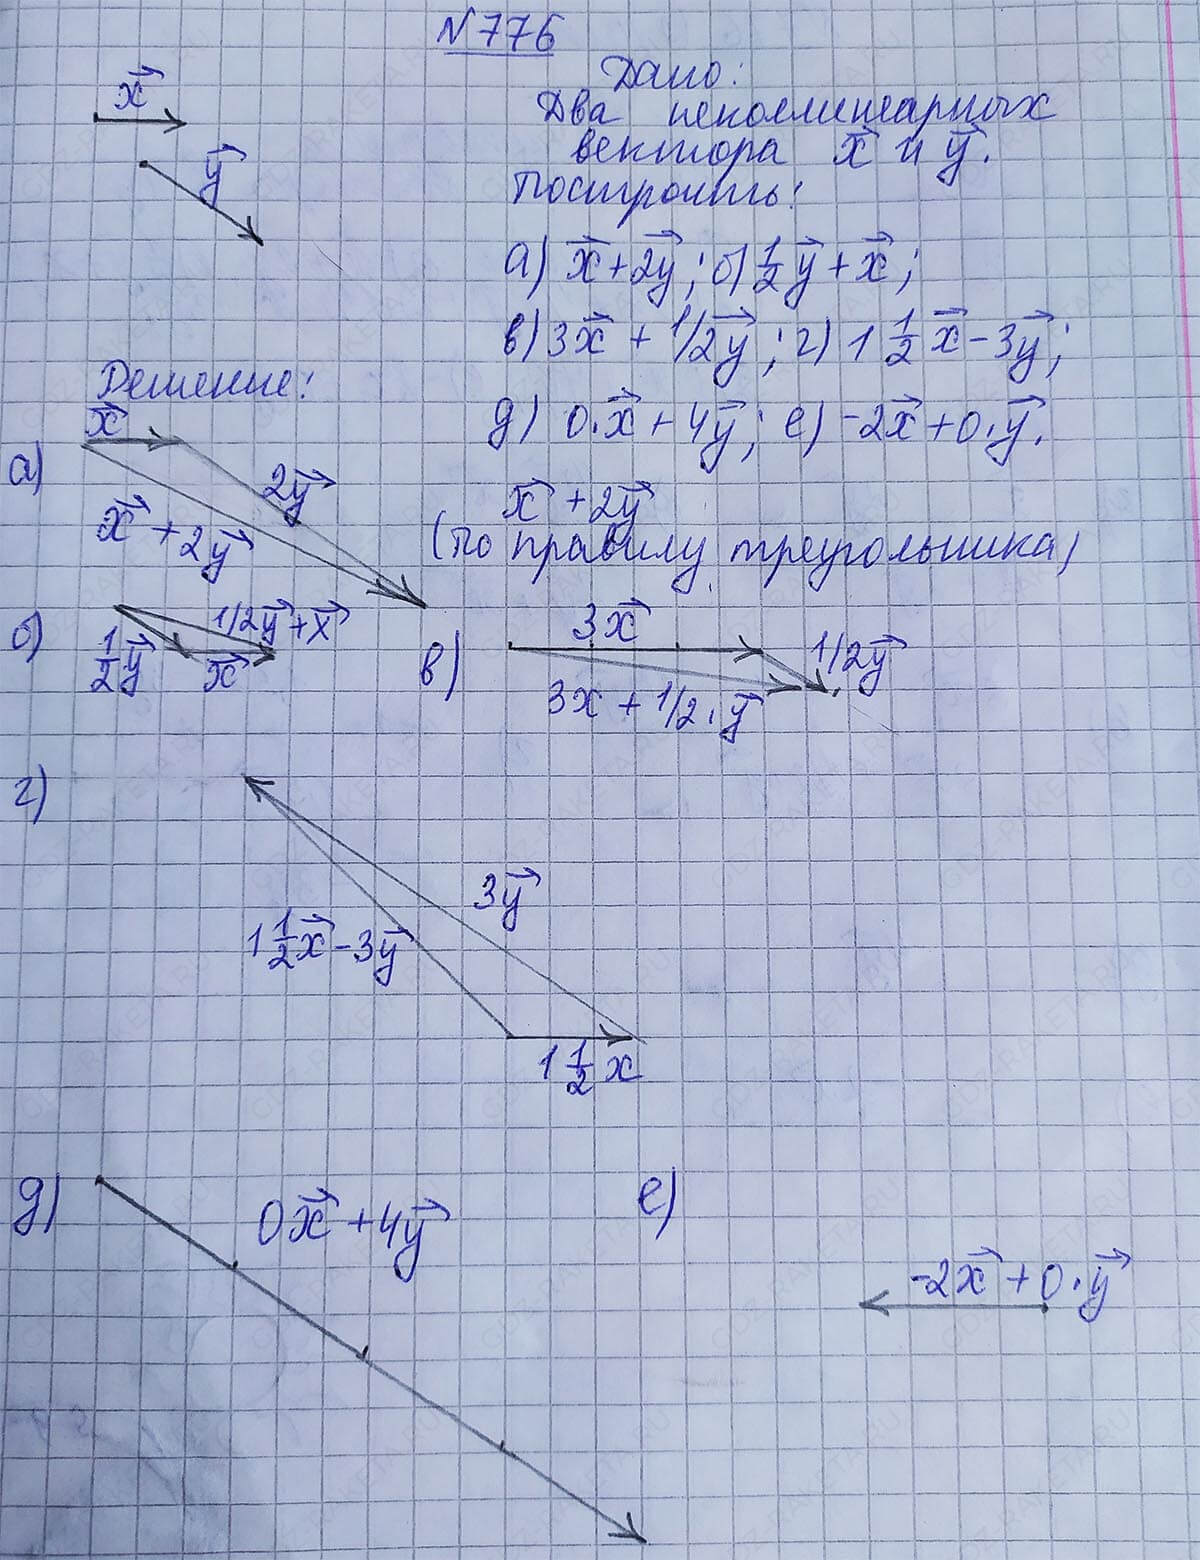 N 776
x⃗
Дано:
Два неколлинеарных
вектора x⃗ и y⃗.
y⃗
Построить:
а) x⃗+2y⃗; б) 1/2 y⃗ + x⃗;
в) 3x⃗ + 1/2y⃗; г) 1 1/2 x⃗ - 3y⃗;
Решение:
д) 0·x⃗ + 4y⃗; е) -2x⃗+0·y⃗.
x⃗
а)
2y⃗
x⃗ + 2y⃗
x⃗ + 2y⃗
(по правилу треугольника)
б)
1/2y⃗+x⃗
1/2 y⃗
x⃗
в)
3x⃗
1/2y⃗
3x + 1/2·y⃗
г)
3y⃗
1 1/2 x⃗ - 3y⃗
1 1/2 x
д)
0x⃗ + 4y⃗
е)
-2x⃗ + 0·y⃗
GDZ-RAKETA.RU